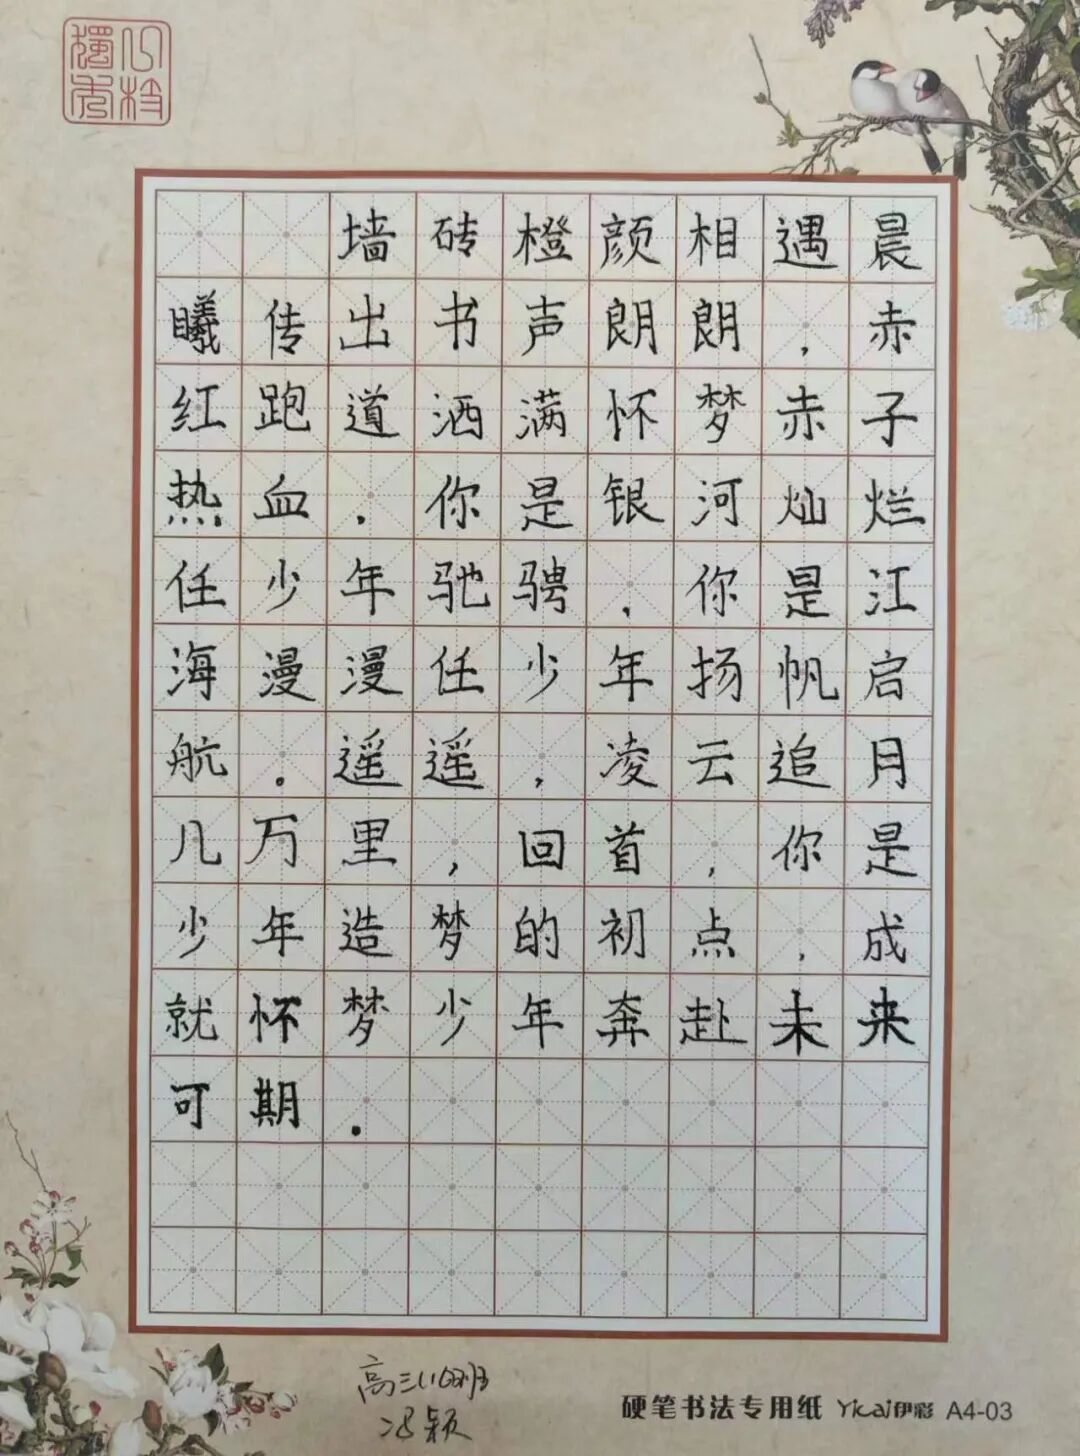 墙砖橙颜相遇晨
曦传出书声朗朗，赤
红跑道洒满怀梦赤子
热血．你是银河灿烂
任少年驰骋．你是江
海漫漫任少年扬帆启
航。遥遥，凌云追月
几万里，回首，你是
少年造梦的初点，成
就怀梦少年奔赴未来
可期．
高三
颖
硬笔书法专用纸 Yicai伊彩 A4-03